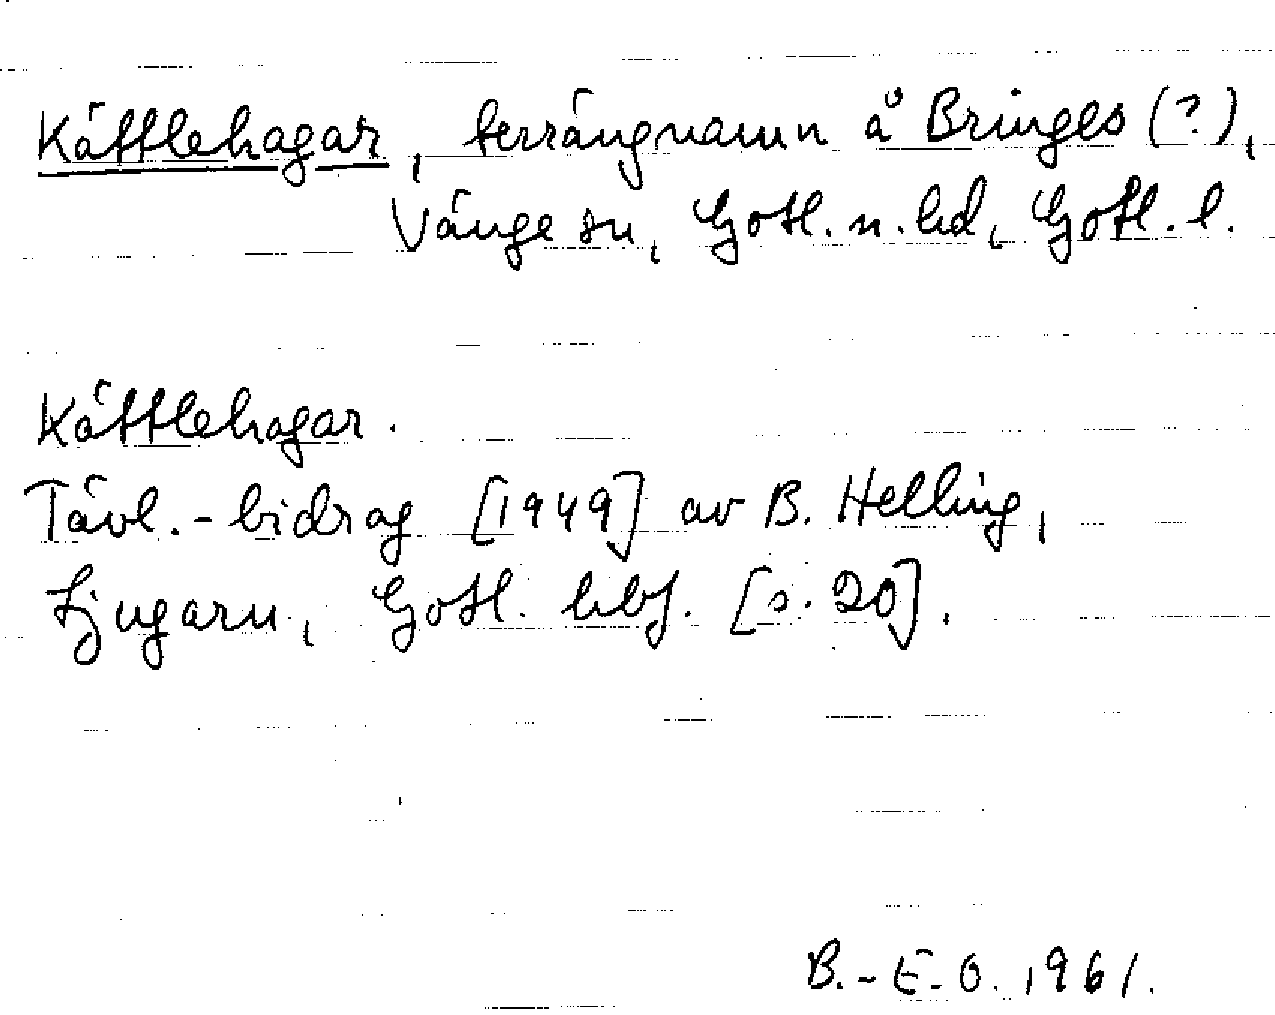 Kättlehagar, terrängnamn å Bringes (?),
Vänge sn, Gotl. n. hd, Gotl. l.
Kättlehagar.
Tävl.-bidrag [1949] av B. Helling,
Ljugarn, Gotl. hbf. [s. 20].
B.-E. O. 1961.